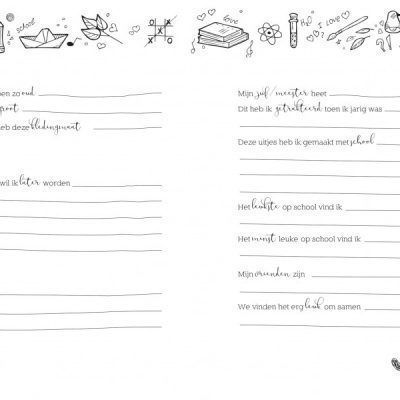 school
fijne
en zo oud
groot
eb deze kledingmaat
wil ik later worden
Mijn juf / meester heet
Dit heb ik getrakteerd toen ik jarig was
Deze uitjes heb ik gemaakt met school
Het leukste op school vind ik
Het minst leuke op school vind ik
Mijn vrienden zijn
We vinden het erg leuk om samen